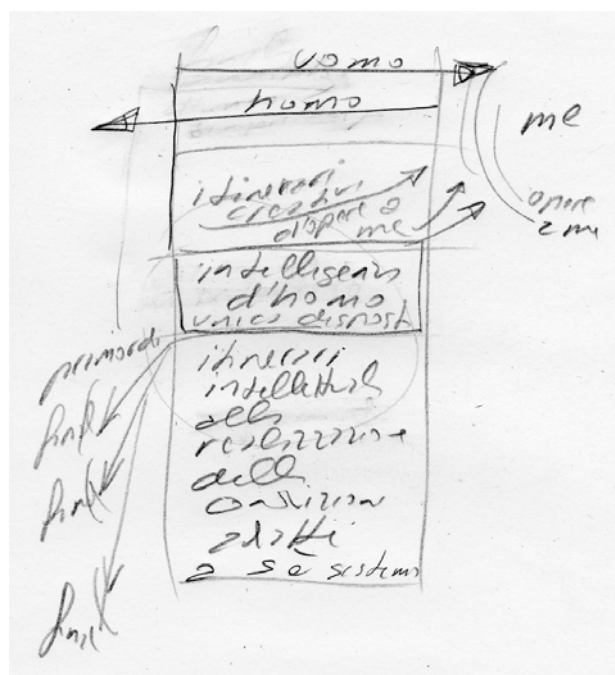 uomo
homo
me
itinerari
creativi
d'opere a
me
opere
a me
intelligenza
d'homo
unica disposta
primordi
itinerari
intellettuali
alla
realizzazione
delle
condizioni
adatte
a sé sistema